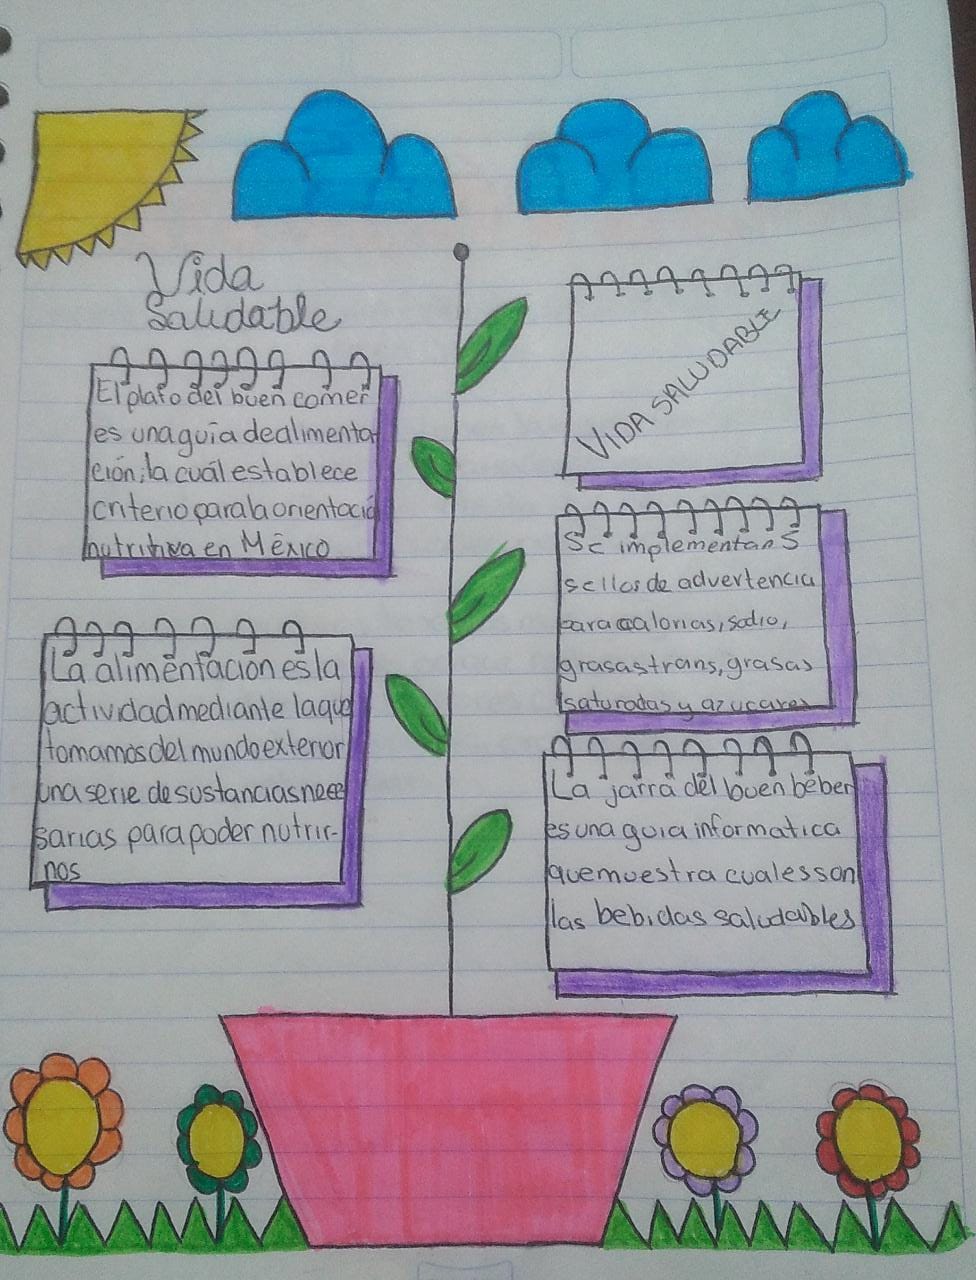 Vida
Saludable
El plato del buen comer
es una guía de alimenta
ción; la cuál establece
criterio para la orientació
nutritiva en México
La alimentación es la
actividad mediante la que
tomamos del mundo exterior
una serie de sustancias nece
sarias para poder nutrir-
nos
VIDA SALUDABLE
Se implementan 5
sellos de advertencia
para calorias, sodio,
grasas trans, grasas
saturadas y azucares
La jarra del buen beber
es una guia informatica
que muestra cuales son
las bebidas saludables